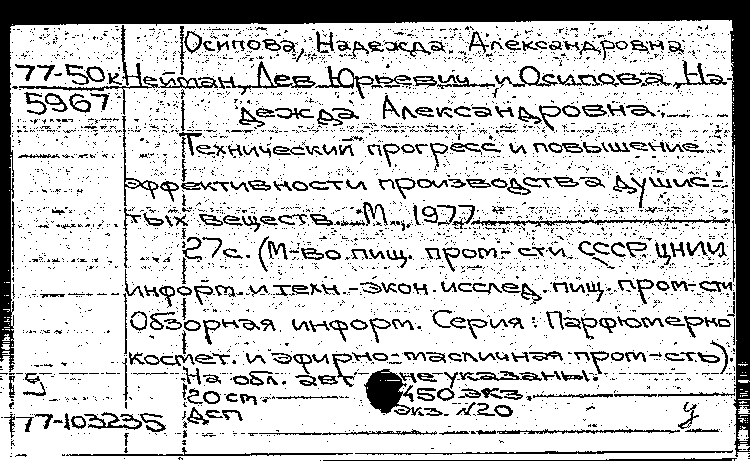 Осипова, Надежда Александровна
77-50к Нейман, Лев Юрьевич и Осипова, На-
5967 дежда Александровна.
Технический прогресс и повышение
эффективности производства душис-
тых веществ. М., 1977
27с. (М-во пищ. пром-сти СССР ЦНИИ
информ. и техн.-экон. исслед. пищ. пром-сти
Обзорная информ. Серия: Парфюмерно
космет. и эфирно-масличная пром-сть).
На обл. авт не указаны.
20 ст. 450 экз.
ДСП экз. №20
77-103235 у